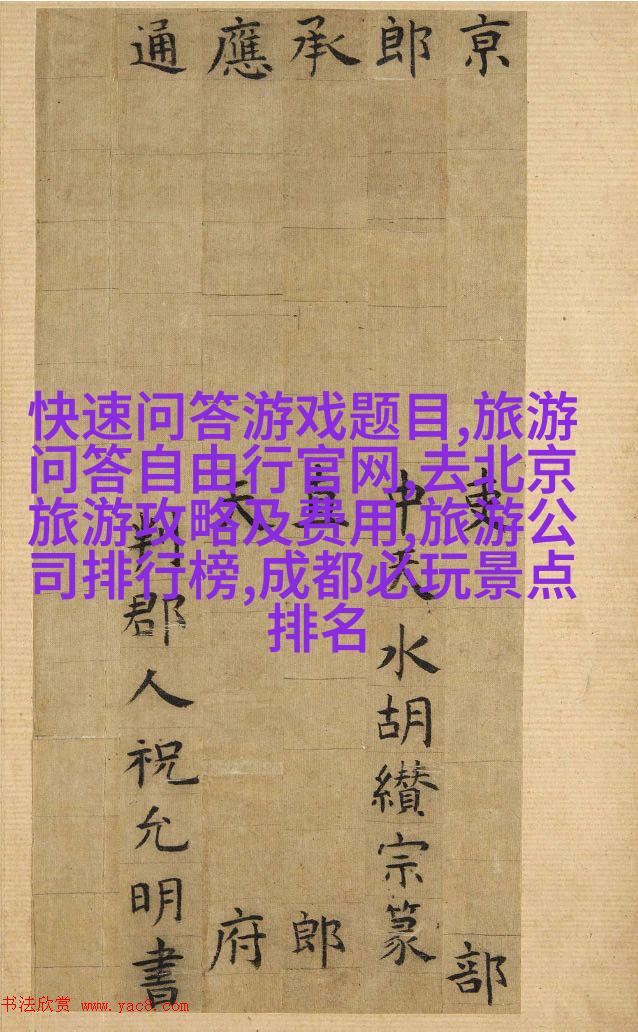 快速问答游戏题目,旅游
问答自由行官网,去北京
旅游攻略及费用,旅游公
司排行榜,成都必玩景点
排名
京吏部
郎中天水胡纘宗篆
承直郎
應天府
通郡人祝允明書
书法欣赏 www.yac8.com